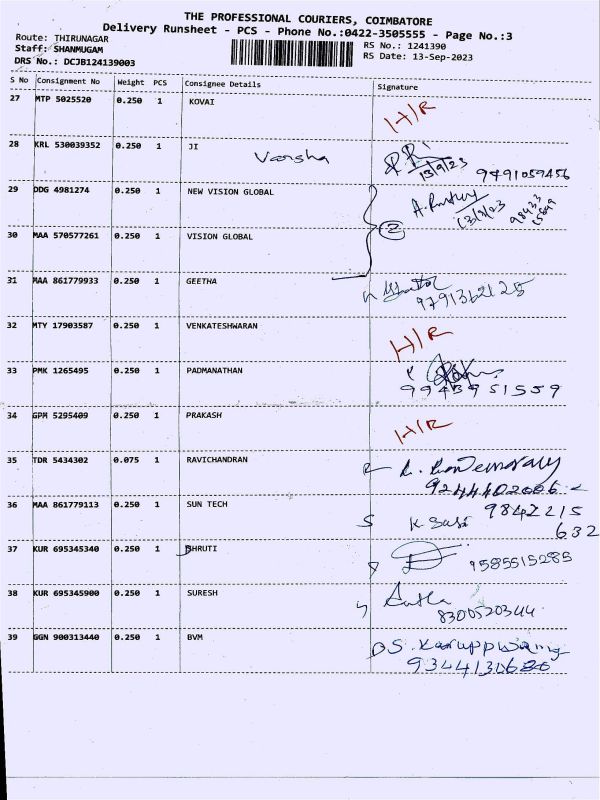 THE PROFESSIONAL COURIERS, COIMBATORE
Delivery Runsheet - PCS - Phone No.:0422-3505555 - Page No.:3
Route: THIRUNAGAR
RS No.: 1241390
Staff: SHANMUGAM
RS Date: 13-Sep-2023
DRS No.: DCJB124139003
S No Consignment No Weight PCS Consignee Details Signature
27 MTP 5025520 0.250 1 KOVAI H/R
28 KRL 530039352 0.250 1 JI Vansha
13/9/23 9491059456
29 DDG 4981274 0.250 1 NEW VISION GLOBAL
13/9/23 98433
15899
30 MAA 570577261 0.250 1 VISION GLOBAL 2
31 MAA 861779933 0.250 1 GEETHA
9791362125
32 MTY 17903587 0.250 1 VENKATESHWARAN H/R
33 PMK 1265495 0.250 1 PADMANATHAN
9943951559
34 GPM 5295409 0.250 1 PRAKASH H/R
35 TDR 5434302 0.075 1 RAVICHANDRAN
9244402006
36 MAA 861779113 0.250 1 SUN TECH K Sasi 9842215
632
37 KUR 695345340 0.250 1 SHRUTI 9585515285
38 KUR 695345900 0.250 1 SURESH
8300520344
39 GGN 900313440 0.250 1 BVM S. Karuppusamy